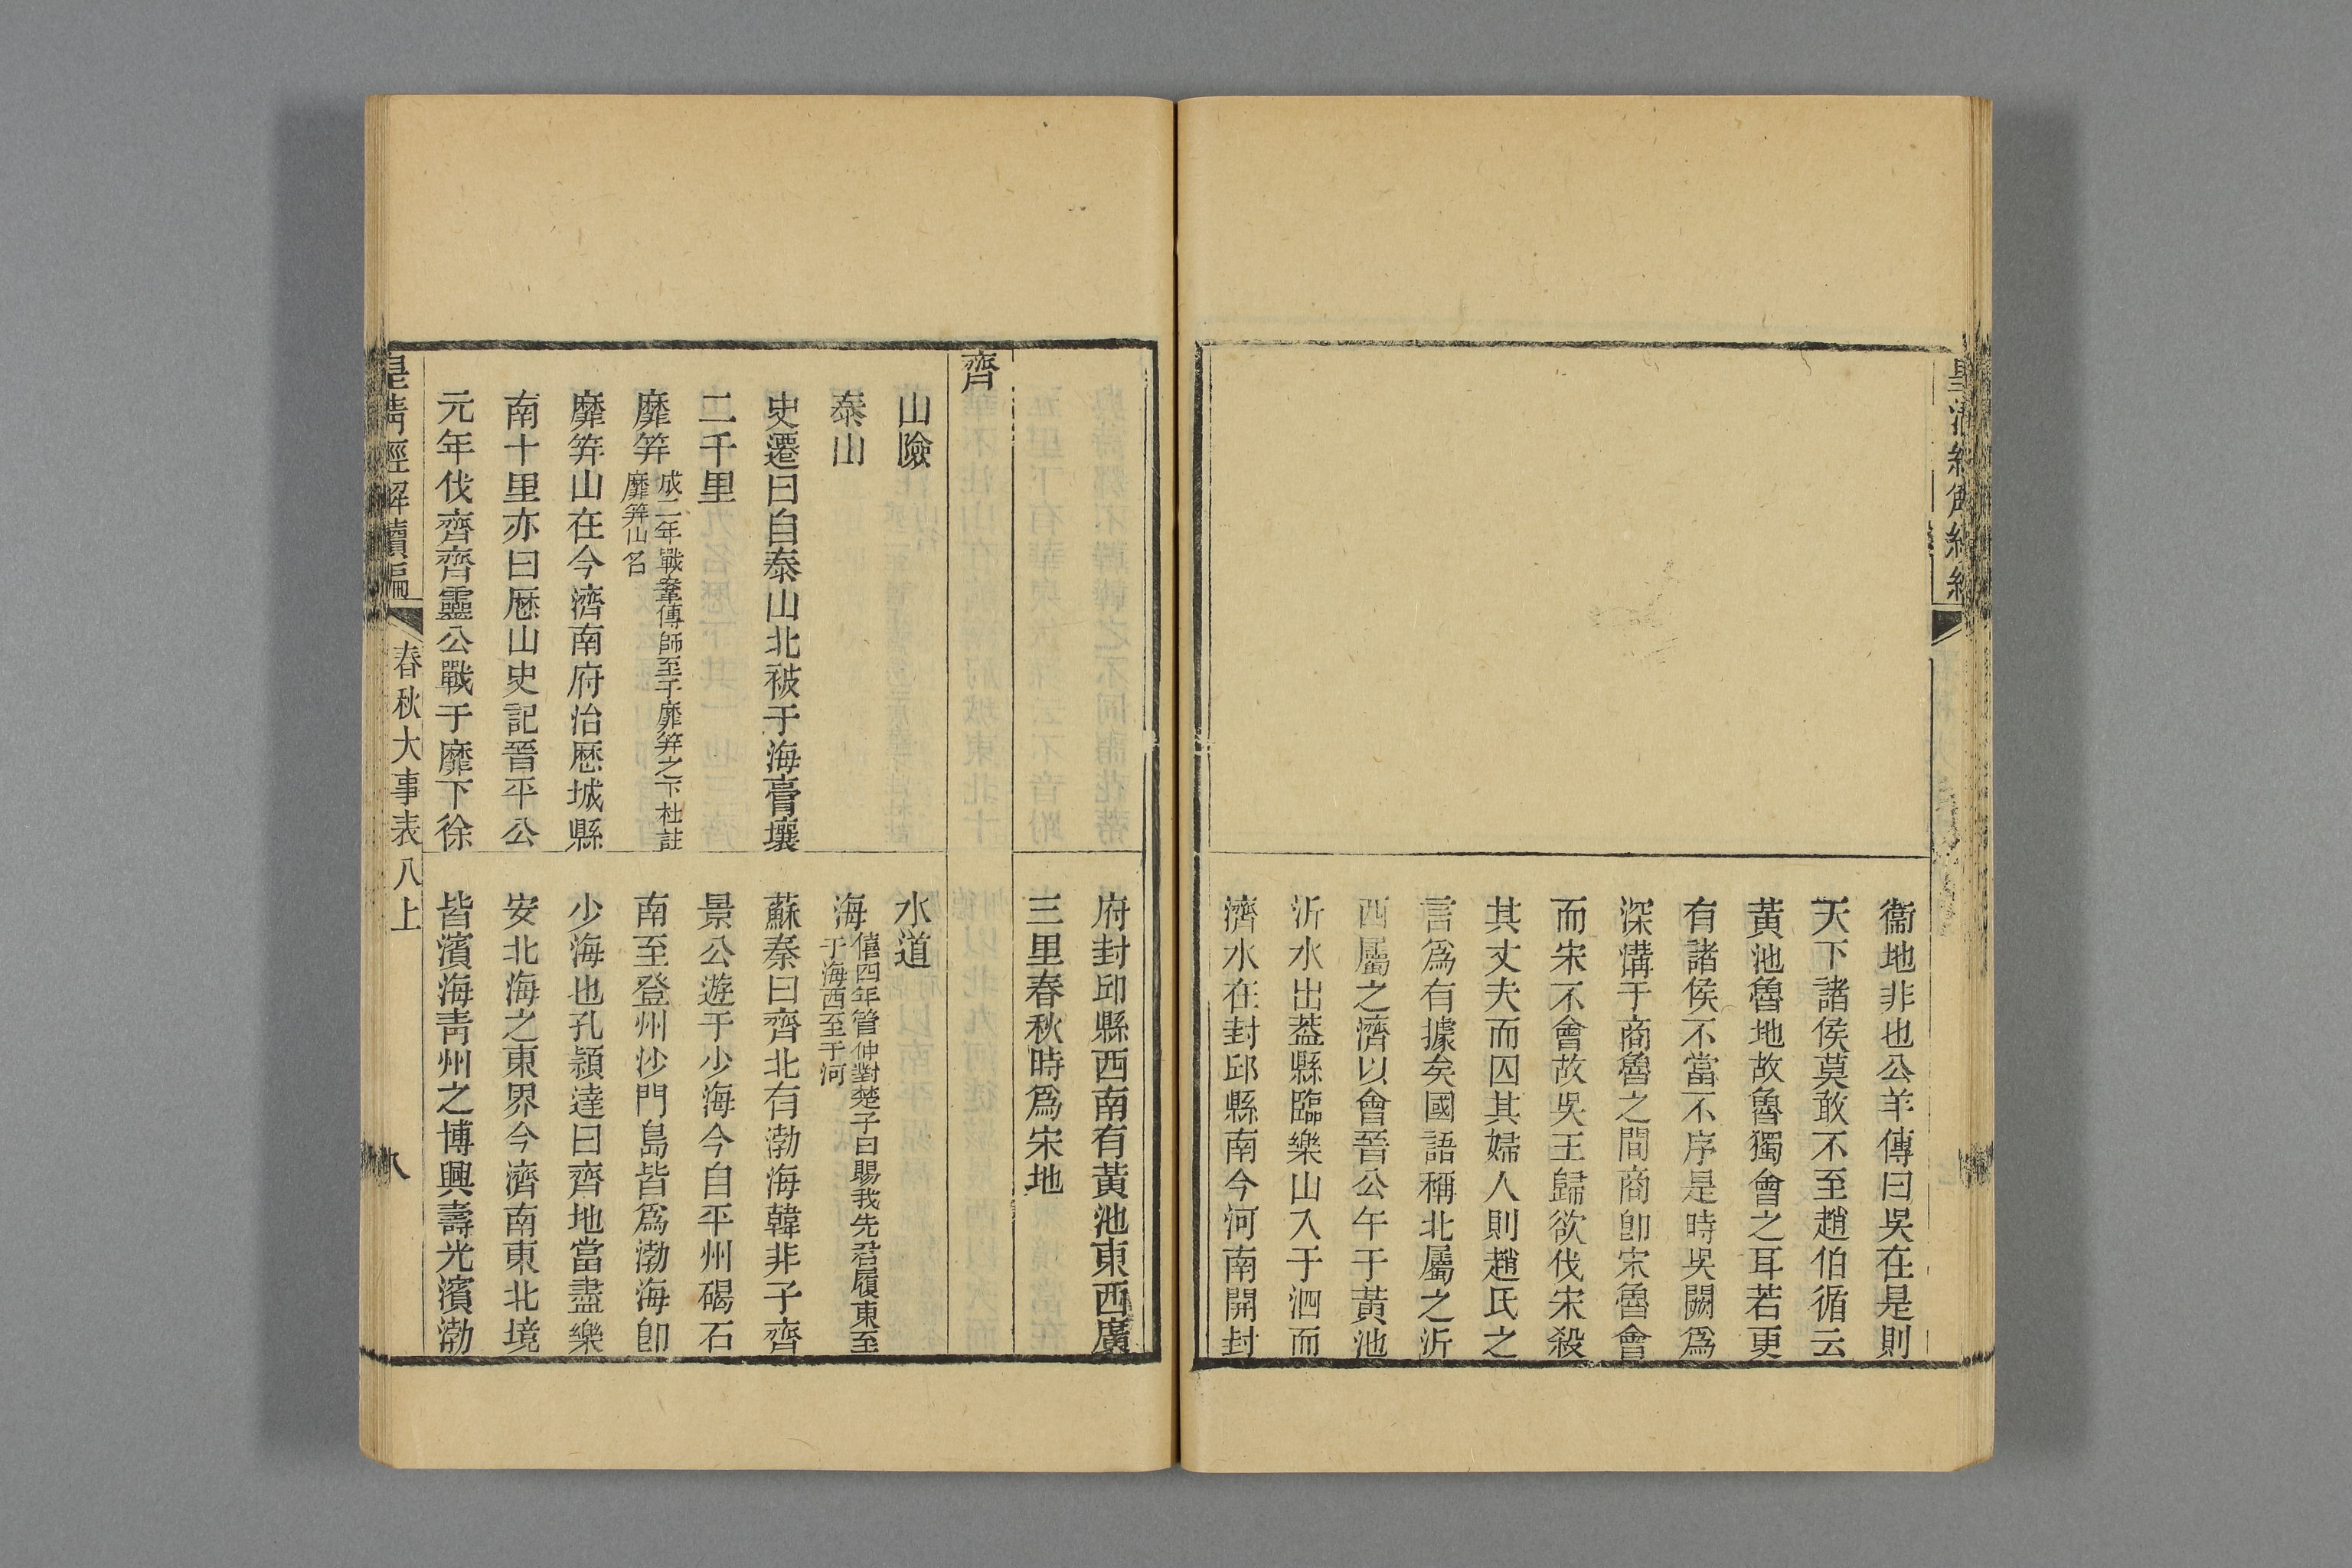 衞地非也公羊傳曰吳在是則
天下諸侯莫敢不至趙伯循云
黃池魯地故魯獨會之耳若更
有諸侯不當不序是時吳闕爲
深溝于商魯之間商卽宋魯會
而宋不會故吳王歸欲伐宋殺
其丈夫而囚其婦人則趙氏之
言爲有據矣國語稱北屬之沂
西屬之濟以會晉公午于黃池
沂水出蓋縣臨樂山入于泗而
濟水在封邱縣南今河南開封
府封邱縣西南有黃池東西廣
三里春秋時爲宋地
齊
山險
泰山
史遷曰自泰山北被于海膏壤
二千里
靡笄
成二年戰鞌傳師至于靡笄之下杜註
靡笄山名
靡笄山在今濟南府治歷城縣
南十里亦曰歷山史記晉平公
元年伐齊齊靈公戰于靡下徐
水道
海
僖四年管仲對楚子曰賜我先君履東至
于海西至于河
蘇秦曰齊北有渤海韓非子齊
景公遊于少海今自平州碣石
南至登州沙門島皆爲渤海卽
少海也孔穎達曰齊地當盡樂
安北海之東界今濟南東北境
皆濱海靑州之博興壽光濱渤
皇淸經解續編
春秋大事表八上
八